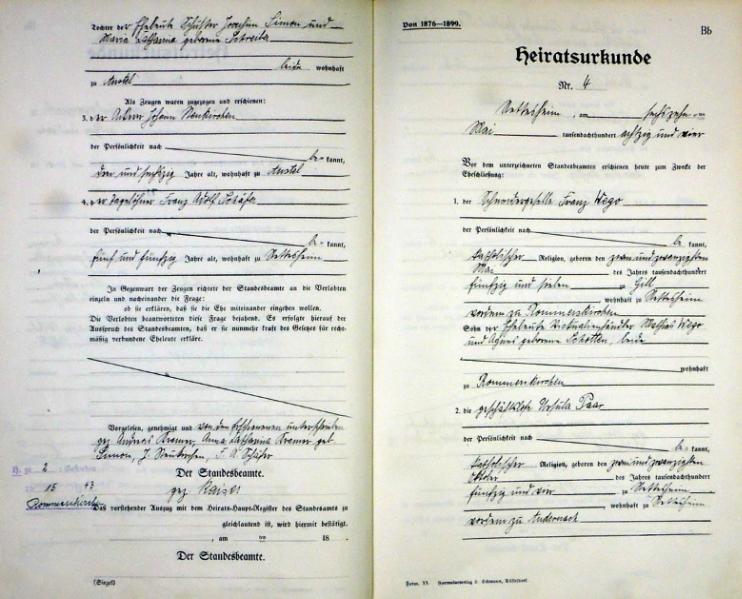 Tochter der Eheleute Schuster Joachim Simon und
Maria Catharina geborene Schreiber
beide wohnhaft
zu Anstel
Als Zeugen waren zugezogen und erschienen:
3. der Ackerer Johann Neukirchen
der Persönlichkeit nach
be- kannt,
drei und sechszig Jahre alt, wohnhaft zu Anstel
4. der Tagelöhner Franz Adolf Schäfer
der Persönlichkeit nach
be- kannt,
fünf und fünfzig Jahre alt, wohnhaft zu Nettesheim
In Gegenwart der Zeugen richtete der Standesbeamte an die Verlobten
einzeln und nacheinander die Frage:
ob sie erklären, daß sie die Ehe miteinander eingehen wollen.
Die Verlobten beantworteten diese Frage bejahend. Es erfolgte hierauf der
Ausspruch des Standesbeamten, daß er sie nunmehr kraft des Gesetzes für recht-
mäßig verbundene Eheleute erkläre.
Vorgelesen, genehmigt und von den Erschienenen unterschrieben
gez Andreas Kremer, Anna Catharina Kremer geb
Simon, J Neukirchen, F. A. Schäfer
H. zu 2
Der Standesbeamte.
15 43
gez Kaiser
Rommerskirchen
Das vorstehender Auszug mit dem Heirats-Haupt-Register des Standesamts zu
gleichlautend ist, wird hiermit bestätigt.
, am ten 18
Der Standesbeamte.
(Siegel)
Von 1876—1899.
Bb
Heiratsurkunde
Nr. 4
Nettesheim, am sechszehnten
Mai tausendachthundert achtzig und vier
Vor dem unterzeichneten Standesbeamten erschienen heute zum Zwecke der
Eheschließung:
1. der Schneidergeselle Franz Wego
der Persönlichkeit nach
be- kannt,
katholischer Religion, geboren den zwei und zwanzigsten
Mai des Jahres tausendachthundert
fünfzig und sieben zu Gill
wohnhaft zu Nettesheim
vordem zu Rommerskirchen
Sohn der Eheleute Victualienhändler Mathias Wego
und Agnes geborene Schotten, beide
wohnhaft
zu Rommerskirchen
2. die geschäftslose Ursula Paar
der Persönlichkeit nach
be- kannt,
katholischer Religion, geboren den zwei und zwanzigsten
Oktober des Jahres tausendachthundert
fünfzig und vier zu Nettesheim
, wohnhaft zu Nettesheim
vordem zu Andernach
Form. VI.